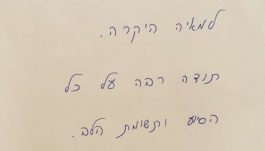 למאיה היקרה.
תודה רבה על כל
הסיוע ותשומת הלב.